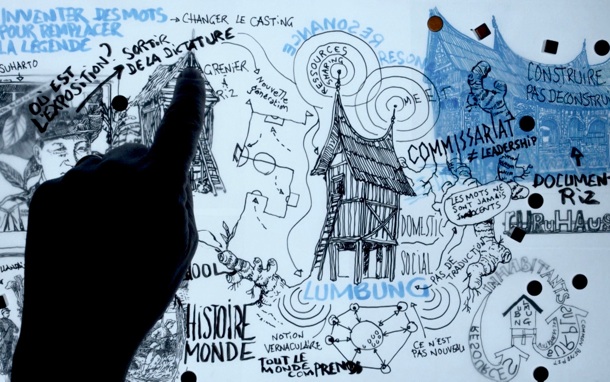 INVENTER DES MOTS
POUR REMPLACER
LA LÉGENDE
→ CHANGER LE CASTING
SUHARTO
OÙ EST
L'EXPOSITION?
SORTIR
DE LA DICTATURE
GRENIER
À
RIZ
RESSOURCES
SHARING
RESONANCE
CONSTRUIRE
PAS DECONSTRU
COMMISSARIAT
≠ LEADERSHIP
LES MOTS NE
SONT JAMAIS
INNOCENTS
DOCUMEN
RIZ
RURUHAUS
DOMESTIC
SOCIAL
PAS DE
TRADUCTION
LUMBUNG
OOL
HISTOIRE
MONDE
NOTION
VERNACULAIRE
TOUT LE
MONDE COMPREND
CE N'EST
PAS NOUVEAU
INHABITANTS